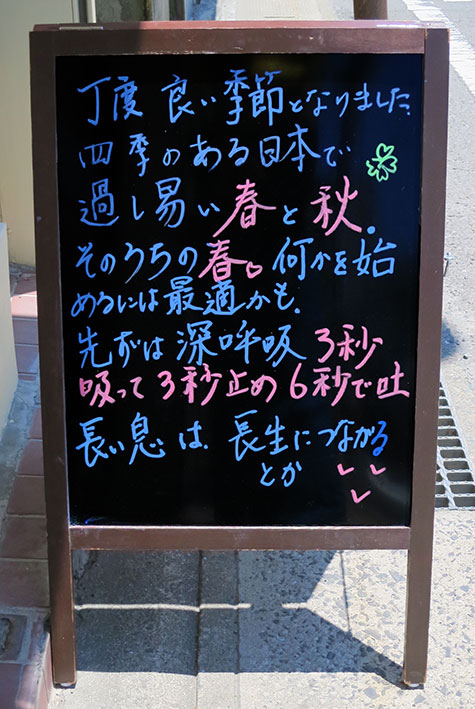 丁度 良い季節となりました.
四季のある日本で
過し易い春と秋.
そのうちの春。何かを始
めるには最適かも.
先ずは深呼吸 3秒
吸って3秒止め6秒で吐
長い息は.長生につながる
とか